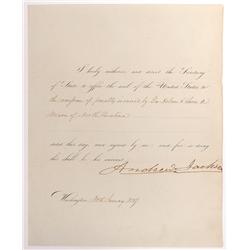 I hereby authorize and direct the Secretary
of State to affix the seal of the United States to
the remission of penalty incurred by
of North Carolina
dated this day, and signed by me: and for so doing
this shall be his warrant.
Andrew Jackson
Washington January 1837